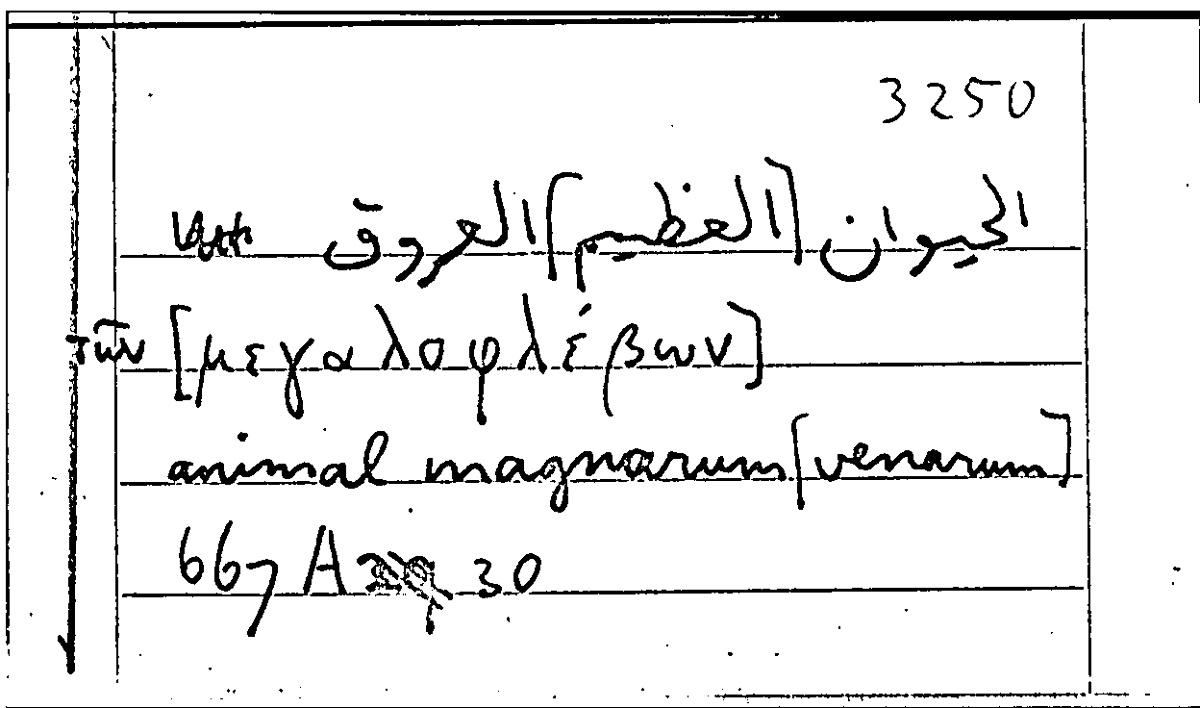 3250
الحيوان [العظيم] العروق
τῶν [μεγαλοφλέβων]
animal magnarum [venarum]
667 A 30